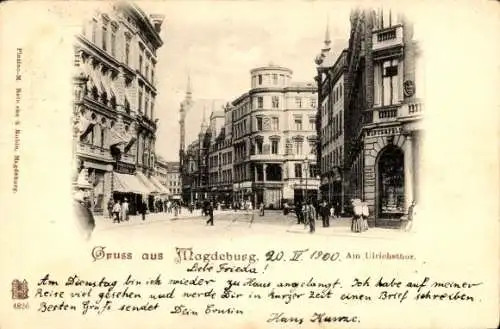 Gruss aus Magdeburg. 20. IV. 1900. Am Ulrichsthor.
Liebe Frieda!
Am Dienstag bin ich wieder zu Haus angelangt. Ich habe auf meiner
Reise viel gesehen und werde Dir in kurzer Zeit einen Brief schreiben.
Besten Gruß sendet Dein Cousin
Hans
4826
Magdeburg.